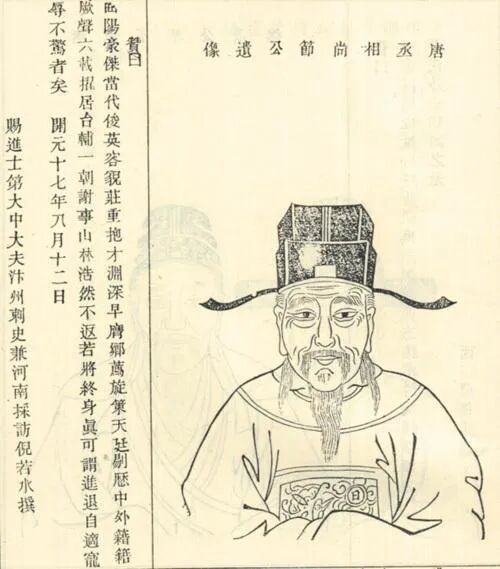 唐丞相尚節公遺像
贊曰
陽豪傑當代俊英容貌莊重抱才淵深早膺鄉薦旋策天廷剔歷中外藉藉
厥聲六載擢居台輔一朝謝事山林浩然不返若將終身眞可謂進退自適寵
辱不驚者矣 開元十七年八月十二日
賜進士第大中大夫汴州刺史兼河南採訪倪若水撰